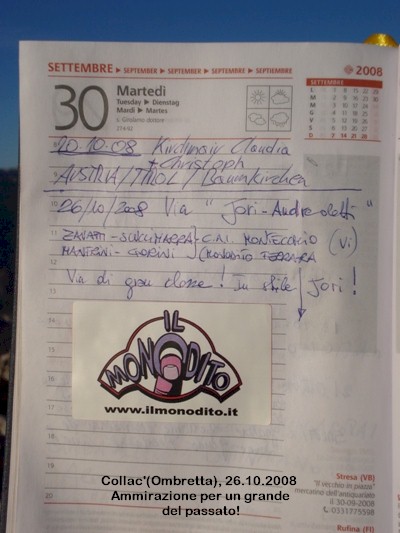 SETTEMBRE ▸ SEPTEMBER ▸ SEPTEMBER ▸ SEPTEMBRE ▸ SEPTIEMBRE
2008
30 Martedì
Tuesday ▸ Dienstag
Mardi ▸ Martes
s. Girolamo dottore
274/92
SETTEMBRE
L 1 8 15 22 29
M 2 9 16 23 30
M 3 10 17 24
G 4 11 18 25
V 5 12 19 26
S 6 13 20 27
D 7 14 21 28
20.10.08 Claudia
+ Christoph
AUSTRIA/TIROL/Baumkirchen
26/10/2008 Via "Jori-Andreoletti"
ZANATTI-SUKLIMARRA-C.A.I. MONTECCHIO (Vi)
MANTRINI-GORINI (MONODITO FERRARA
Via di gran classe! In stile Jori!
IL
MONODITO
www.ilmonodito.it
Stresa (VB)
"Il vecchio in piazza"
mercatino dell'antiquariato
il 30-09-2008
0331775598
Rufina (FI)
Collac'(Ombretta), 26.10.2008
Ammirazione per un grande
del passato!